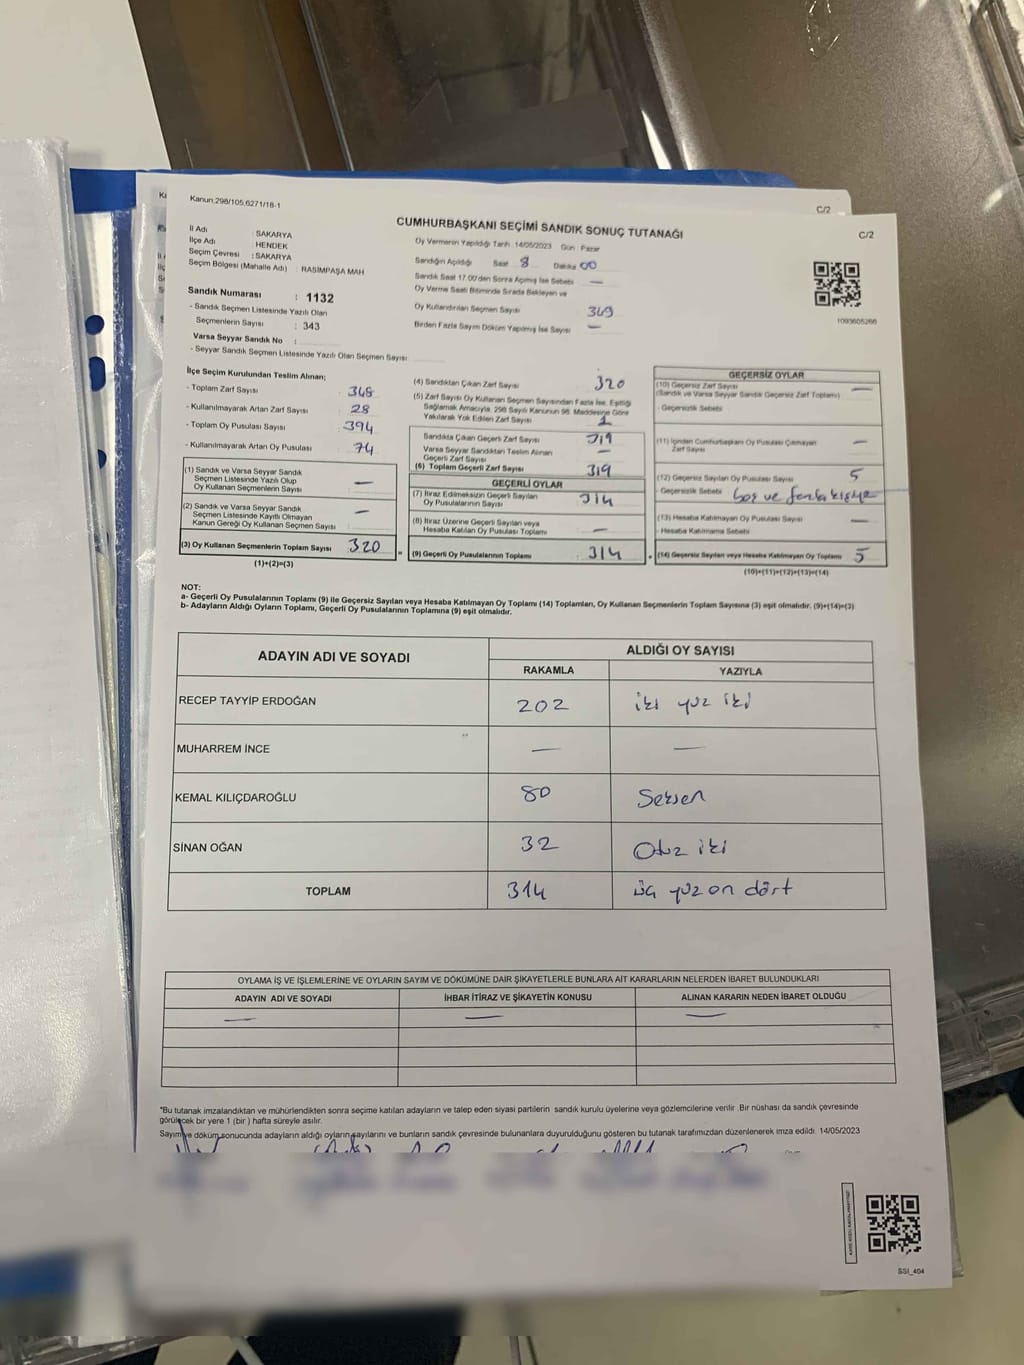 Kanun.298/105,6271/18-1
C/2
C/2
CUMHURBAŞKANI SEÇİMİ SANDIK SONUÇ TUTANAĞI
İl Adı : SAKARYA
İlçe Adı : HENDEK
Seçim Çevresi : SAKARYA
Seçim Bölgesi (Mahalle Adı) : RASİMPAŞA MAH
Sandık Numarası : 1132
- Sandık Seçmen Listesinde Yazılı Olan
Seçmenlerin Sayısı : 343
Varsa Seyyar Sandık No :
- Seyyar Sandık Seçmen Listesinde Yazılı Olan Seçmen Sayısı:
Oy Vermenin Yapıldığı Tarih :14/05/2023 Gün : Pazar
Sandığın Açıldığı Saat 8 Dakika 00
Sandık Saat 17.00'den Sonra Açılmış İse Sebebi —
Oy Verme Saati Bitiminde Sırada Bekleyen ve
Oy Kullandırılan Seçmen Sayısı
Birden Fazla Sayım Döküm Yapılmış İse Sayısı —
1093605266
İlçe Seçim Kurulundan Teslim Alınan;
- Toplam Zarf Sayısı 348
- Kullanılmayarak Artan Zarf Sayısı 28
- Toplam Oy Pusulası Sayısı 394
- Kullanılmayarak Artan Oy Pusulası 74
(1) Sandık ve Varsa Seyyar Sandık
Seçmen Listesinde Yazılı Olup
Oy Kullanan Seçmenlerin Sayısı —
(2) Sandık ve Varsa Seyyar Sandık
Seçmen Listesinde Kayıtlı Olmayan
Kanun Gereği Oy Kullanan Seçmen Sayısı —
(3) Oy Kullanan Seçmenlerin Toplam Sayısı 320
(1)+(2)=(3)
(4) Sandıktan Çıkan Zarf Sayısı 320
(5) Zarf Sayısı Oy Kullanan Seçmen Sayısından Fazla İse, Eşitliği
Sağlamak Amacıyla, 298 Sayılı Kanunun 98. Maddesine Göre
Yakılarak Yok Edilen Zarf Sayısı 1
Sandıkta Çıkan Geçerli Zarf Sayısı 319
Varsa Seyyar Sandıktan Teslim Alınan
Geçerli Zarf Sayısı —
(6) Toplam Geçerli Zarf Sayısı 319
GEÇERLİ OYLAR
(7) İtiraz Edilmeksizin Geçerli Sayılan
Oy Pusulalarının Sayısı 314
(8) İtiraz Üzerine Geçerli Sayılan veya
Hesaba Katılan Oy Pusulası Toplamı —
(9) Geçerli Oy Pusulalarının Toplamı 314
GEÇERSİZ OYLAR
(10) Geçersiz Zarf Sayısı
(Sandık ve Varsa Seyyar Sandık Geçersiz Zarf Toplamı) —
- Geçersizlik Sebebi
(11) İçinden Cumhurbaşkanı Oy Pusulası Çıkmayan
Zarf Sayısı —
(12) Geçersiz Sayılan Oy Pusulası Sayısı 5
- Geçersizlik Sebebi boş ve fazla kişiye
(13) Hesaba Katılmayan Oy Pusulası Sayısı —
- Hesaba Katılmama Sebebi
(14) Geçersiz Sayılan veya Hesaba Katılmayan Oy Toplamı 5
(10)+(11)+(12)+(13)=(14)
NOT:
a- Geçerli Oy Pusulalarının Toplamı (9) ile Geçersiz Sayılan veya Hesaba Katılmayan Oy Toplamı (14) Toplamları, Oy Kullanan Seçmenlerin Toplam Sayısına (3) eşit olmalıdır. (9)+(14)=(3)
b- Adayların Aldığı Oyların Toplamı, Geçerli Oy Pusulalarının Toplamına (9) eşit olmalıdır.
ADAYIN ADI VE SOYADI
ALDIĞI OY SAYISI
RAKAMLA YAZIYLA
RECEP TAYYİP ERDOĞAN 202 iki yüz iki
MUHARREM İNCE — —
KEMAL KILIÇDAROĞLU 80 Seksen
SİNAN OĞAN 32 Otuz iki
TOPLAM 314 üç yüz on dört
OYLAMA İŞ VE İŞLEMLERİNE VE OYLARIN SAYIM VE DÖKÜMÜNE DAİR ŞİKAYETLERLE BUNLARA AİT KARARLARIN NELERDEN İBARET BULUNDUKLARI
ADAYIN ADI VE SOYADI İHBAR İTİRAZ VE ŞİKAYETİN KONUSU ALINAN KARARIN NEDEN İBARET OLDUĞU
— — —
*Bu tutanak imzalandıktan ve mühürlendikten sonra seçime katılan adayların ve talep eden siyasi partilerin sandık kurulu üyelerine veya gözlemcilerine verilir .Bir nüshası da sandık çevresinde
görülecek bir yere 1 (bir ) hafta süreyle asılır.
Sayım ve döküm sonucunda adayların aldığı oyların sayılarını ve bunların sandık çevresinde bulunanlara duyurulduğunu gösteren bu tutanak tarafımızdan düzenlenerek imza edildi. 14/05/2023
SSI_404